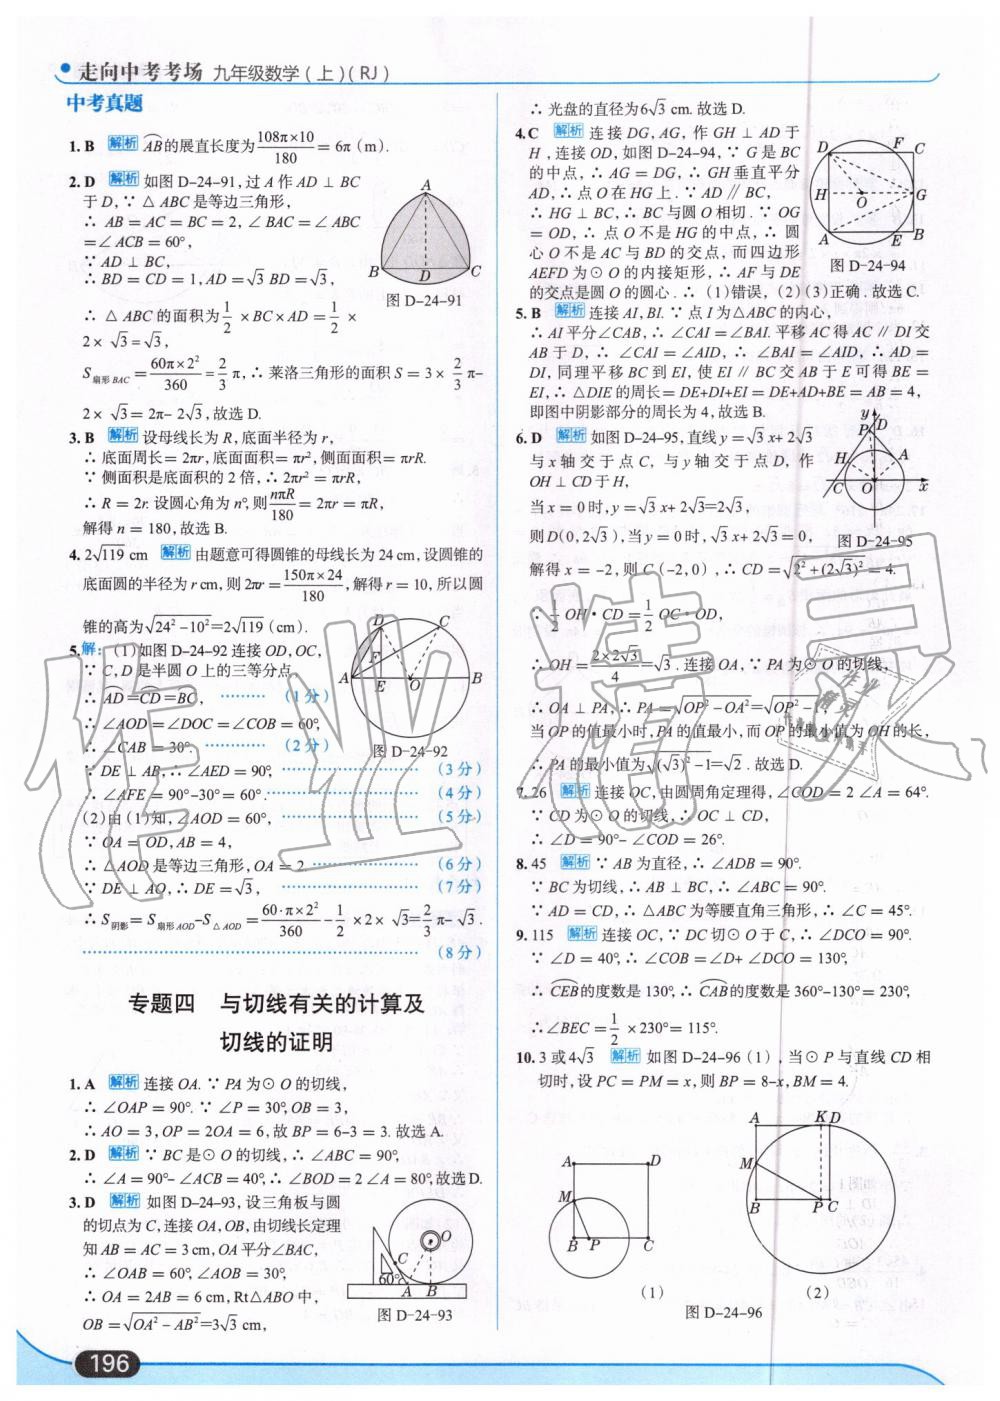 走向中考考场 九年级数学(上)(RJ)
中考真题
1. B 解析 AB的展直长度为 108π×10/180 = 6π (m).
2. D 解析 如图 D-24-91,过 A 作 AD ⊥ BC
于 D, ∵ △ ABC 是等边三角形,
∴ AB = AC = BC = 2, ∠ BAC = ∠ ABC
= ∠ ACB = 60°,
∵ AD ⊥ BC,
∴ BD = CD = 1, AD = √3 BD = √3,
∴ △ ABC 的面积为 1/2 × BC × AD = 1/2 ×
2× √3 = √3,
S扇形 BAC = 60π×2²/360 = 2/3 π, ∴ 莱洛三角形的面积 S = 3× 2/3 π-
2× √3 = 2π- 2√3, 故选 D.
A
B
D
C
图 D-24-91
3. B 解析 设母线长为 R, 底面半径为 r,
∴ 底面周长 = 2πr, 底面面积 = πr², 侧面面积 = πrR.
∵ 侧面积是底面积的 2 倍, ∴ 2πr² = πrR,
∴ R = 2r. 设圆心角为 n°, 则 nπR/180 = 2πr = πR,
解得 n = 180, 故选 B.
4. 2√119 cm 解析 由题意可得圆锥的母线长为 24 cm, 设圆锥的
底面圆的半径为 r cm, 则 2πr = 150π×24/180, 解得 r = 10, 所以圆
锥的高为 √24²-10² = 2√119 (cm).
5. 解: (1)如图 D-24-92 连接 OD, OC,
∵ C, D 是半圆 O 上的三等分点,
∴ AD = CD = BC, ……… (1 分)
∴ ∠AOD = ∠DOC = ∠COB = 60°,
∴ ∠CAB = 30°. ………… (2 分)
∵ DE ⊥ AB, ∴ ∠AED = 90°, ………… (3 分)
∴ ∠AFE = 90°-30° = 60°. ………… (4 分)
D
C
F
A
E
O
B
图 D-24-92
(2)由(1)知, ∠AOD = 60°, ………… (5 分)
∵ OA = OD, AB = 4,
∴ △AOD 是等边三角形, OA = 2. ………… (6 分)
∵ DE ⊥ AO, ∴ DE = √3, ………… (7 分)
∴ S阴影 = S扇形 AOD - S△AOD = 60·π×2²/360 - 1/2 ×2× √3 = 2/3 π- √3.
………… (8 分)
专题四 与切线有关的计算及
切线的证明
1. A 解析 连接 OA. ∵ PA 为⊙ O 的切线,
∴ ∠OAP = 90°. ∵ ∠P = 30°, OB = 3,
∴ AO = 3, OP = 2OA = 6, 故 BP = 6-3 = 3. 故选 A.
2. D 解析 ∵ BC 是⊙ O 的切线, ∴ ∠ABC = 90°,
∴ ∠A = 90°- ∠ACB = 40°, ∴ ∠BOD = 2 ∠A = 80°, 故选 D.
3. D 解析 如图 D-24-93, 设三角板与圆
的切点为 C, 连接 OA, OB, 由切线长定理
知 AB = AC = 3 cm, OA 平分∠BAC,
∴ ∠OAB = 60°, ∠AOB = 30°,
∴ OA = 2AB = 6 cm, Rt△ABO 中,
OB = √OA²-AB² = 3√3 cm,
O
C
60°
A
B
图 D-24-93
∴ 光盘的直径为 6√3 cm. 故选 D.
4. C 解析 连接 DG, AG, 作 GH ⊥ AD 于
H, 连接 OD, 如图 D-24-94, ∵ G 是 BC
的中点, ∴ AG = DG, ∴ GH 垂直平分
AD, ∴ 点 O 在 HG 上. ∵ AD ∥ BC,
∴ HG ⊥ BC, ∴ BC 与圆 O 相切. ∵ OG
= OD, ∴ 点 O 不是 HG 的中点, ∴ 圆
心 O 不是 AC 与 BD 的交点, 而四边形
AEFD 为⊙ O 的内接矩形, ∴ AF 与 DE
的交点是圆 O 的圆心. ∴ (1)错误, (2)(3)正确. 故选 C.
D
F
C
H
O
G
A
E
B
图 D-24-94
5. B 解析 连接 AI, BI. ∵ 点 I 为△ABC 的内心,
∴ AI 平分∠CAB, ∴ ∠CAI = ∠BAI. 平移 AC 得 AC ∥ DI 交
AB 于 D, ∴ ∠CAI = ∠AID, ∴ ∠BAI = ∠AID, ∴ AD =
DI, 同理平移 BC 到 EI, 使 EI ∥ BC 交 AB 于 E 可得 BE =
EI, ∴ △DIE 的周长 = DE+DI+EI = DE+AD+BE = AB = 4,
即图中阴影部分的周长为 4, 故选 B.
6. D 解析 如图 D-24-95, 直线 y = √3 x+ 2√3
与 x 轴交于点 C, 与 y 轴交于点 D, 作
OH ⊥ CD 于 H,
当 x = 0 时, y = √3 x+ 2√3 = 2√3,
则 D(0, 2√3), 当 y = 0 时, √3 x+ 2√3 = 0,
解得 x = -2, 则 C(-2, 0), ∴ CD = √2²+(2√3)² = 4.
∵ 1/2 OH·CD = 1/2 OC·OD,
∴ OH = 2×2√3/4 = √3. 连接 OA, ∵ PA 为⊙ O 的切线,
∴ OA ⊥ PA, ∴ PA = √OP²-OA² = √OP²-1,
当 OP 的值最小时, PA 的值最小, 而 OP 的最小值为 OH 的长,
∴ PA 的最小值为 √(√3)²-1 = √2. 故选 D.
y
P
D
H
A
C
O
x
图 D-24-95
7. 26 解析 连接 OC, 由圆周角定理得, ∠COD = 2 ∠A = 64°.
∵ CD 为⊙ O 的切线, ∴ OC ⊥ CD,
∴ ∠D = 90°- ∠COD = 26°.
8. 45 解析 ∵ AB 为直径, ∴ ∠ADB = 90°.
∵ BC 为切线, ∴ AB ⊥ BC, ∴ ∠ABC = 90°.
∵ AD = CD, ∴ △ABC 为等腰直角三角形, ∴ ∠C = 45°.
9. 115 解析 连接 OC, ∵ DC 切⊙ O 于 C, ∴ ∠DCO = 90°.
∵ ∠D = 40°, ∴ ∠COB = ∠D+ ∠DCO = 130°,
∴ CEB 的度数是 130°, ∴ CAB 的度数是 360°-130° = 230°,
∴ ∠BEC = 1/2 × 230° = 115°.
10. 3 或 4√3 解析 如图 D-24-96 (1), 当⊙ P 与直线 CD 相
切时, 设 PC = PM = x, 则 BP = 8-x, BM = 4.
A
D
M
B
P
C
(1)
A
K
D
M
B
P
C
(2)
图 D-24-96
196
作业精灵